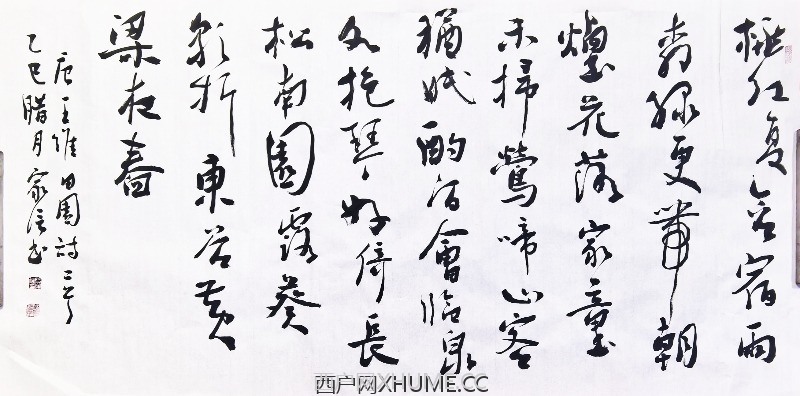 桃红复含宿雨
柳绿更帶朝
煙花落家童
未掃鶯啼山客
猶眠酌酒會臨泉
水抱琴好倚長
松南園露葵
朝折東谷黄
梁夜舂
唐王維田園詩二首
乙巳腊月家信书
西户网XHUME.CC